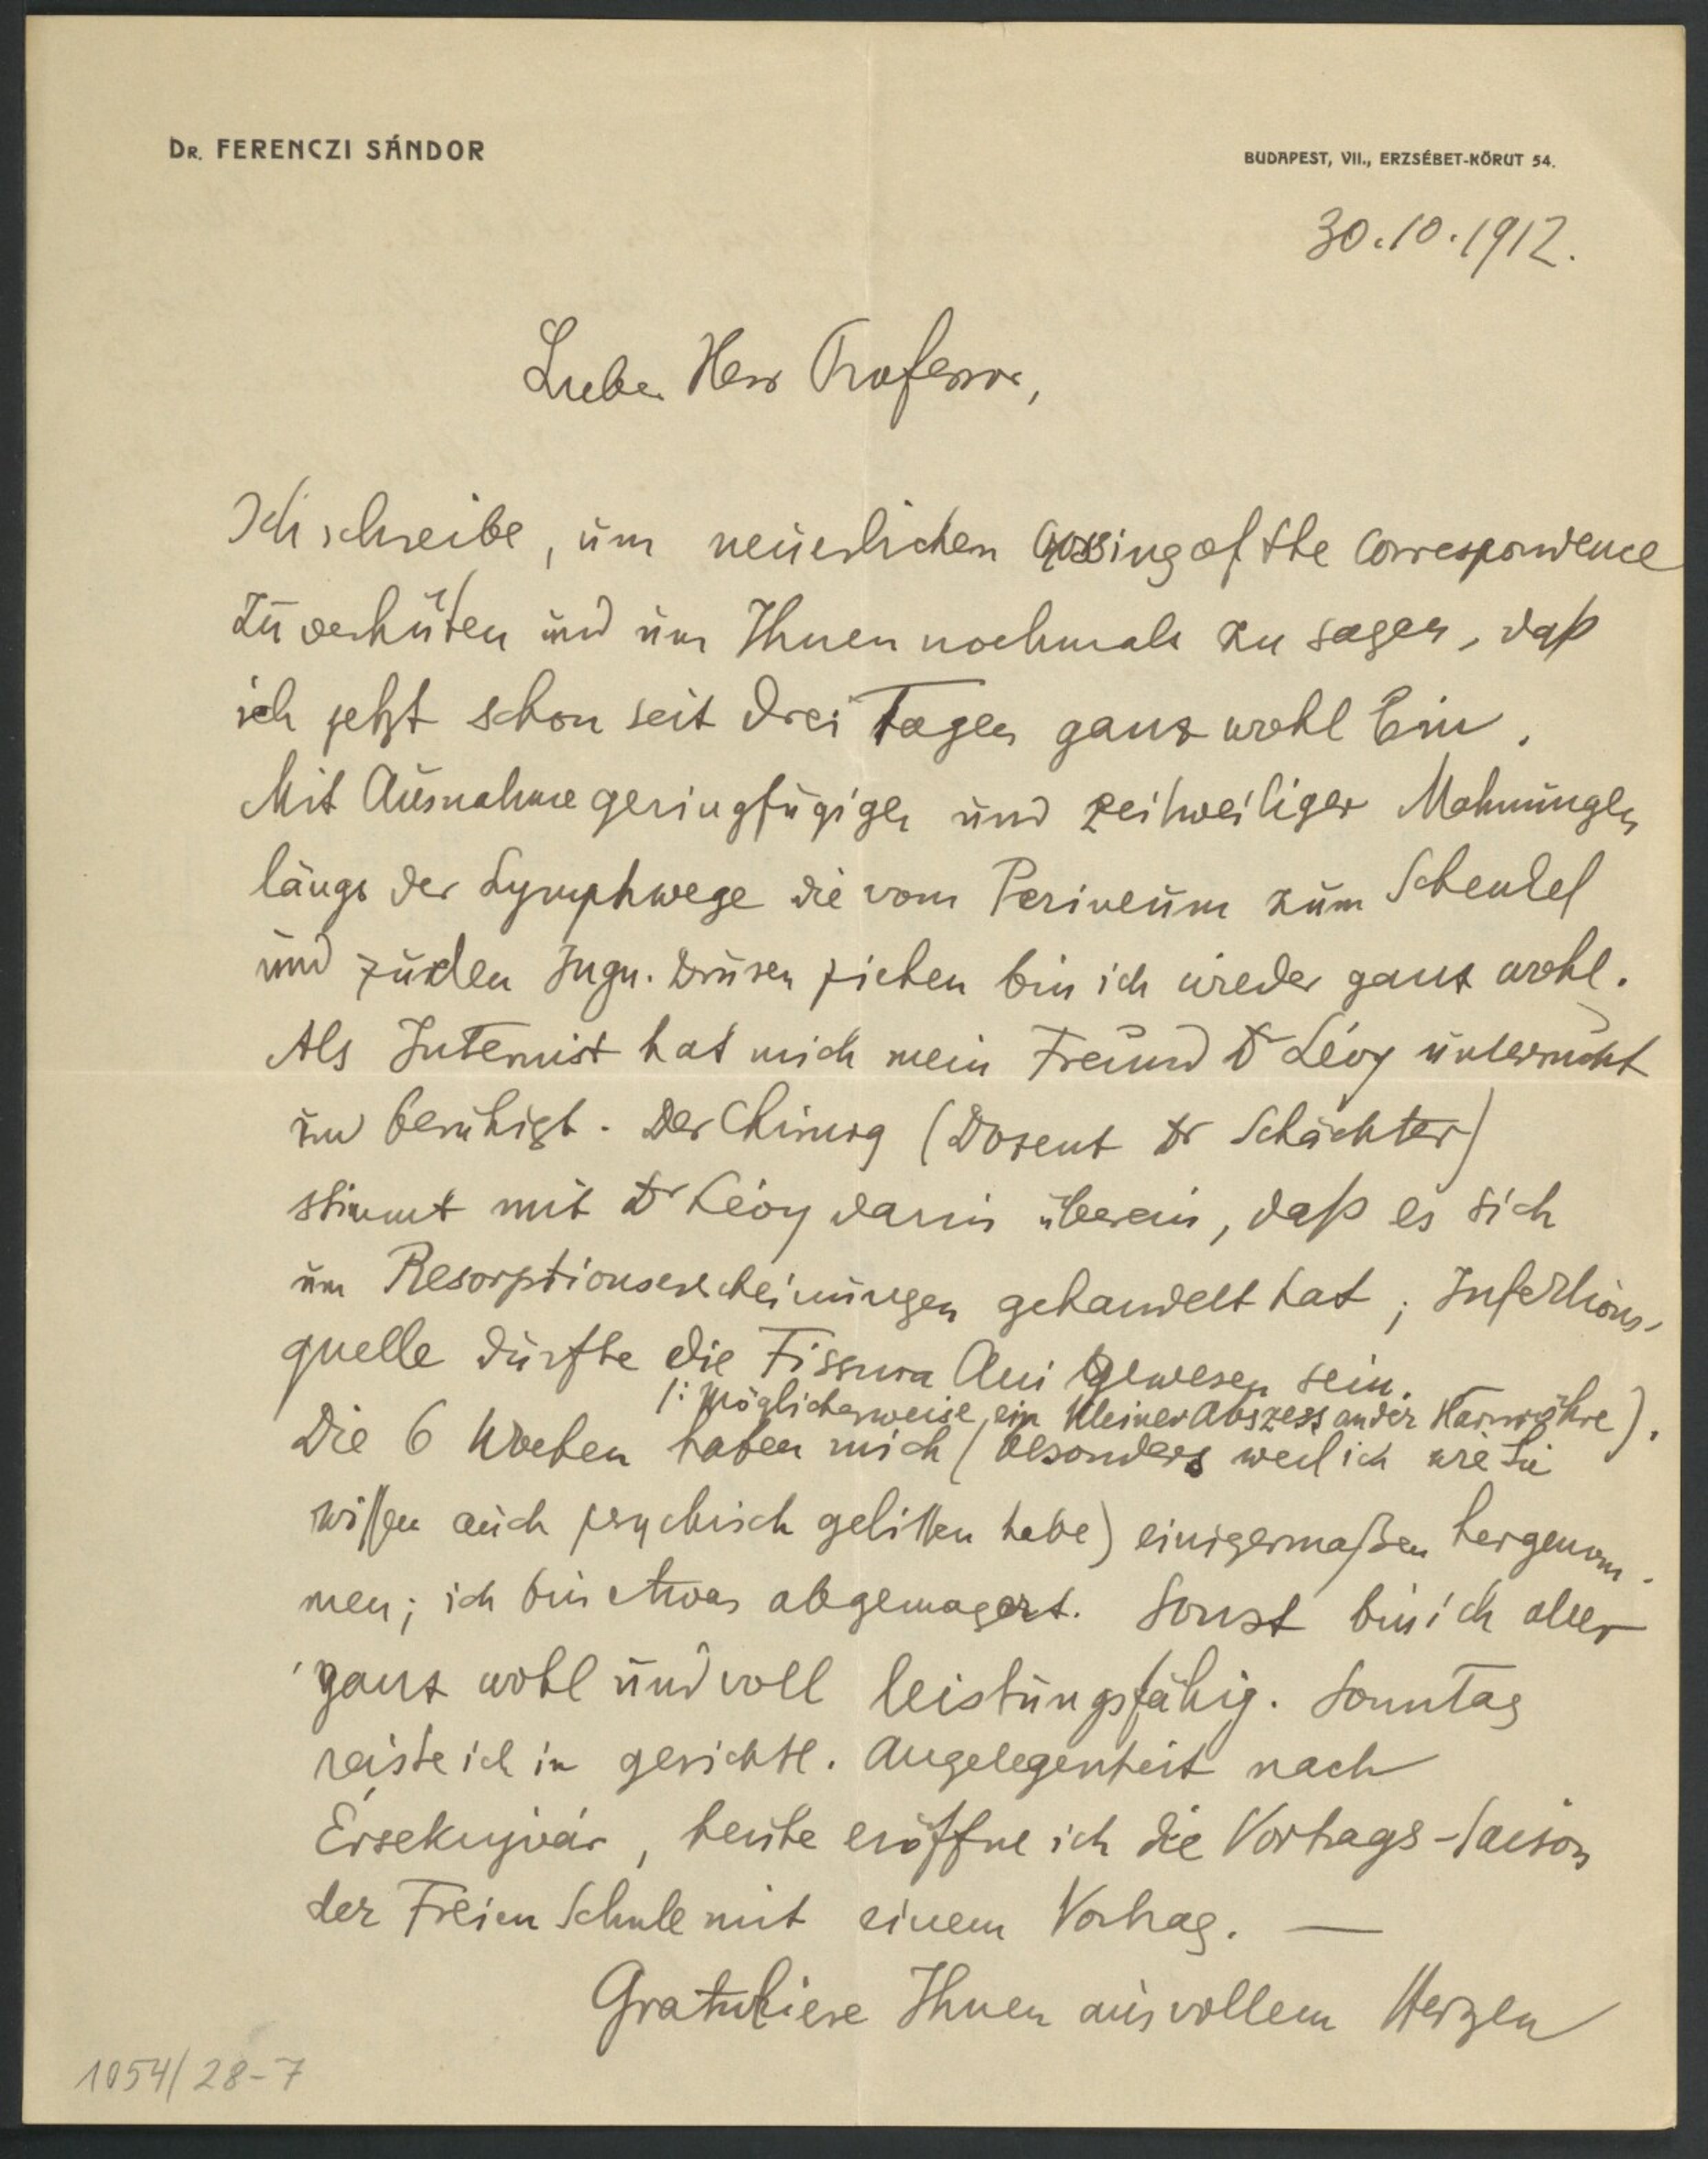 Dr. FERENCZI SÁNDOR
BUDAPEST, VII., ERZSÉBET-KÖRUT 54.
30.10.1912.
Lieber Herr Professor,
Ich schreibe, um neuerlichen Crossing of the Correspondence
zu verhüten und um Ihnen nochmals zu sagen, daß
ich jetzt schon seit drei Tagen ganz wohl bin.
Mit Ausnahme geringfügiger und zeitweiliger Mahnungen
längs der Lymphwege die vom Perineum zum Schenkel
und zu den Ingu. Drüsen ziehen bin ich wieder ganz wohl.
Als Internist hat mich mein Freund Dr Lévy untersucht
und beruhigt. Der Chirurg (Dozent Dr Schächter)
stimmt mit Dr Lévy darin überein, daß es sich
um Resorptionserscheinungen gehandelt hat; Infektions-
quelle dürfte die Fissura Ani gewesen sein.
/: Möglicherweise ein kleiner Abszess an der Harnröhre).
Die 6 Wochen haben mich (besonders weil ich wie Sie
wissen auch psychisch gelitten habe) einigermaßen hergenom-
men; ich bin etwas abgemagert. Sonst bin ich aber
ganz wohl und voll leistungsfähig. Sonntag
reiste ich in gerichtl. Angelegenheit nach
Érsekujvár, heute eröffne ich die Vortrags-Saison
der Freien Schule mit einem Vortrag. —
Gratuliere Ihnen aus vollem Herzen
1054/28-7